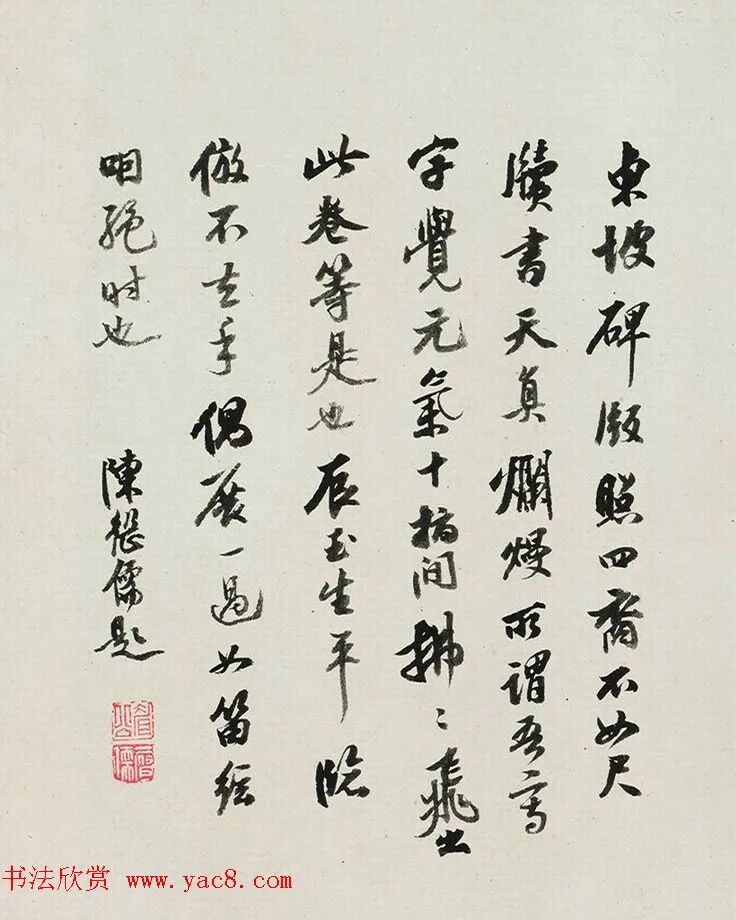 東坡碑版照四裔不如尺
牘書天真爛熳所謂吾寫
字覺元氣十指間拂〻飛出
此卷等是也辰玉生平臨
倣不去手偶展一過如笛絃
明絕時也
陳繼儒題
书法欣赏 www.yac8.com